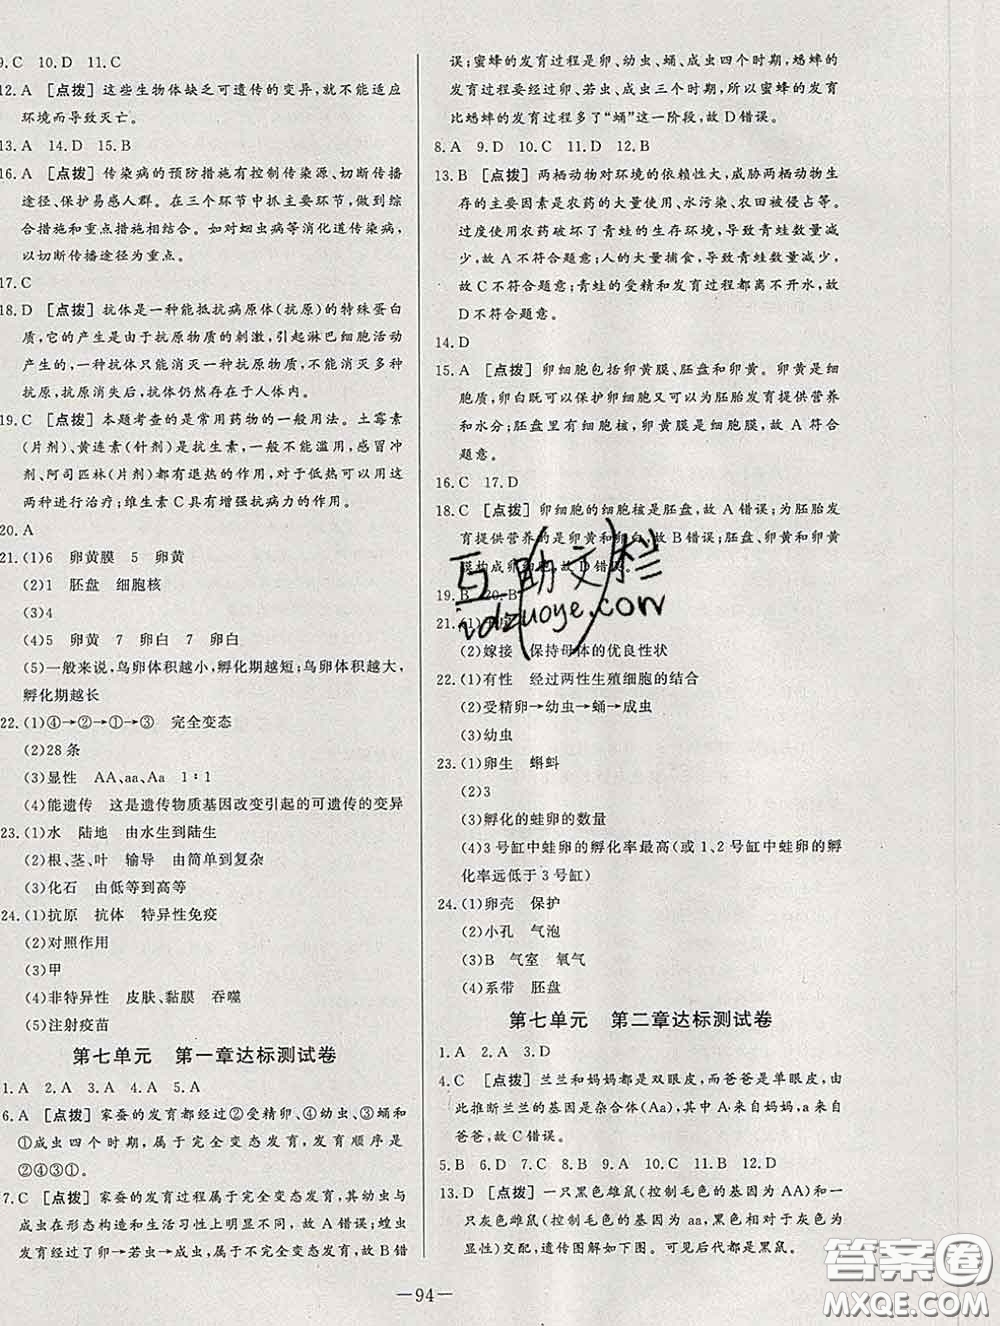 9.C 10.D 11.C
12.A [点拨] 这些生物体缺乏可遗传的变异,就不能适应
环境而导致灭亡。
13.A 14.D 15.B
16.A [点拨] 传染病的预防措施有控制传染源、切断传播
途径、保护易感人群。在三个环节中抓主要环节,做到综
合措施和重点措施相结合。如对蛔虫病等消化道传染病,
以切断传播途径为重点。
17.C
18.D [点拨] 抗体是一种能抵抗病原体(抗原)的特殊蛋白
质,它的产生是由于抗原物质的刺激,引起淋巴细胞活动
产生的,一种抗体只能消灭一种抗原物质,不能消灭多种
抗原,抗原消失后,抗体仍然存在于人体内。
19.C [点拨] 本题考查的是常用药物的一般用法。土霉素
(片剂)、黄连素(针剂)是抗生素,一般不能滥用,感冒冲
剂、阿司匹林(片剂)都有退热的作用,对于低热可以用这
两种进行治疗;维生素C具有增强抗病力的作用。
20.A
21.(1)6 卵黄膜 5 卵黄
(2)1 胚盘 细胞核
(3)4
(4)5 卵黄 7 卵白 7 卵白
(5)一般来说,鸟卵体积越小,孵化期越短;鸟卵体积越大,
孵化期越长
22.(1)④→②→①→③ 完全变态
(2)28条
(3)显性 AA、aa、Aa 1∶1
(4)能遗传 这是遗传物质基因改变引起的可遗传的变异
23.(1)水 陆地 由水生到陆生
(2)根、茎、叶 输导 由简单到复杂
(3)化石 由低等到高等
24.(1)抗原 抗体 特异性免疫
(2)对照作用
(3)甲
(4)非特异性 皮肤、黏膜 吞噬
(5)注射疫苗
第七单元 第一章达标测试卷
1.A 2.A 3.A 4.A 5.A
6.A [点拨] 家蚕的发育都经过②受精卵、④幼虫、③蛹和
①成虫四个时期,属于完全变态发育,发育顺序是
②④③①。
7.C [点拨] 家蚕的发育过程属于完全变态发育,其幼虫与
成虫在形态构造和生活习性上明显不同,故A错误;蝗虫
发育经过了卵→若虫→成虫,属于不完全变态发育,故B错
误;蜜蜂的发育过程是卵、幼虫、蛹、成虫四个时期,蟋蟀的
发育过程要经过卵、若虫、成虫三个时期,所以蜜蜂的发育
比蟋蟀的发育过程多了“蛹”这一阶段,故D错误。
8.A 9.D 10.C 11.D 12.B
13.B [点拨] 两栖动物对环境的依赖性大,威胁两栖动物生
存的主要因素是农药的大量使用、水污染、农田被侵占等。
过度使用农药破坏了青蛙的生存环境,导致青蛙数量减
少,故A不符合题意;人的大量捕食,导致青蛙数量减少,
故C不符合题意;青蛙的受精和发育过程都离不开水,故
D不符合题意。
14.D
15.A [点拨] 卵细胞包括卵黄膜、胚盘和卵黄。卵黄是细
胞质,卵白既可以保护卵细胞又可以为胚胎发育提供营养
和水分;胚盘里有细胞核,卵黄膜是细胞膜,故A符合
题意。
16.C 17.D
18.C [点拨] 卵细胞的细胞核是胚盘,故A错误;为胚胎发
育提供营养的是卵黄和卵白,故B错误;胚盘、卵黄和卵黄
膜构成卵细胞,故D错误。
19.B 20.B
21.(1)
(2)嫁接 保持母体的优良性状
22.(1)有性 经过两性生殖细胞的结合
(2)受精卵→幼虫→蛹→成虫
(3)幼虫
23.(1)卵生 蝌蚪
(2)3
(3)孵化的蛙卵的数量
(4)3号缸中蛙卵的孵化率最高(或1、2号缸中蛙卵的孵
化率远低于3号缸)
24.(1)卵壳 保护
(2)小孔 气泡
(3)B 气室 氧气
(4)系带 胚盘
第七单元 第二章达标测试卷
1.A 2.A 3.D
4.C [点拨] 兰兰和妈妈都是双眼皮,而爸爸是单眼皮,由
此推断兰兰的基因是杂合体(Aa),其中A来自妈妈,a来自
爸爸,故C错误。
5.B 6.D 7.C 8.B 9.A 10.A 11.B 12.D
13.D [点拨] 一只黑色雌鼠(控制毛色的基因为AA)和一
只灰色雄鼠(控制毛色的基因为aa,黑色相对于灰色为
显性)交配,遗传图解如下图。可见后代都是黑鼠。
互助文栏
idzuoye.com
—94—
答案圈
MXQE.COM